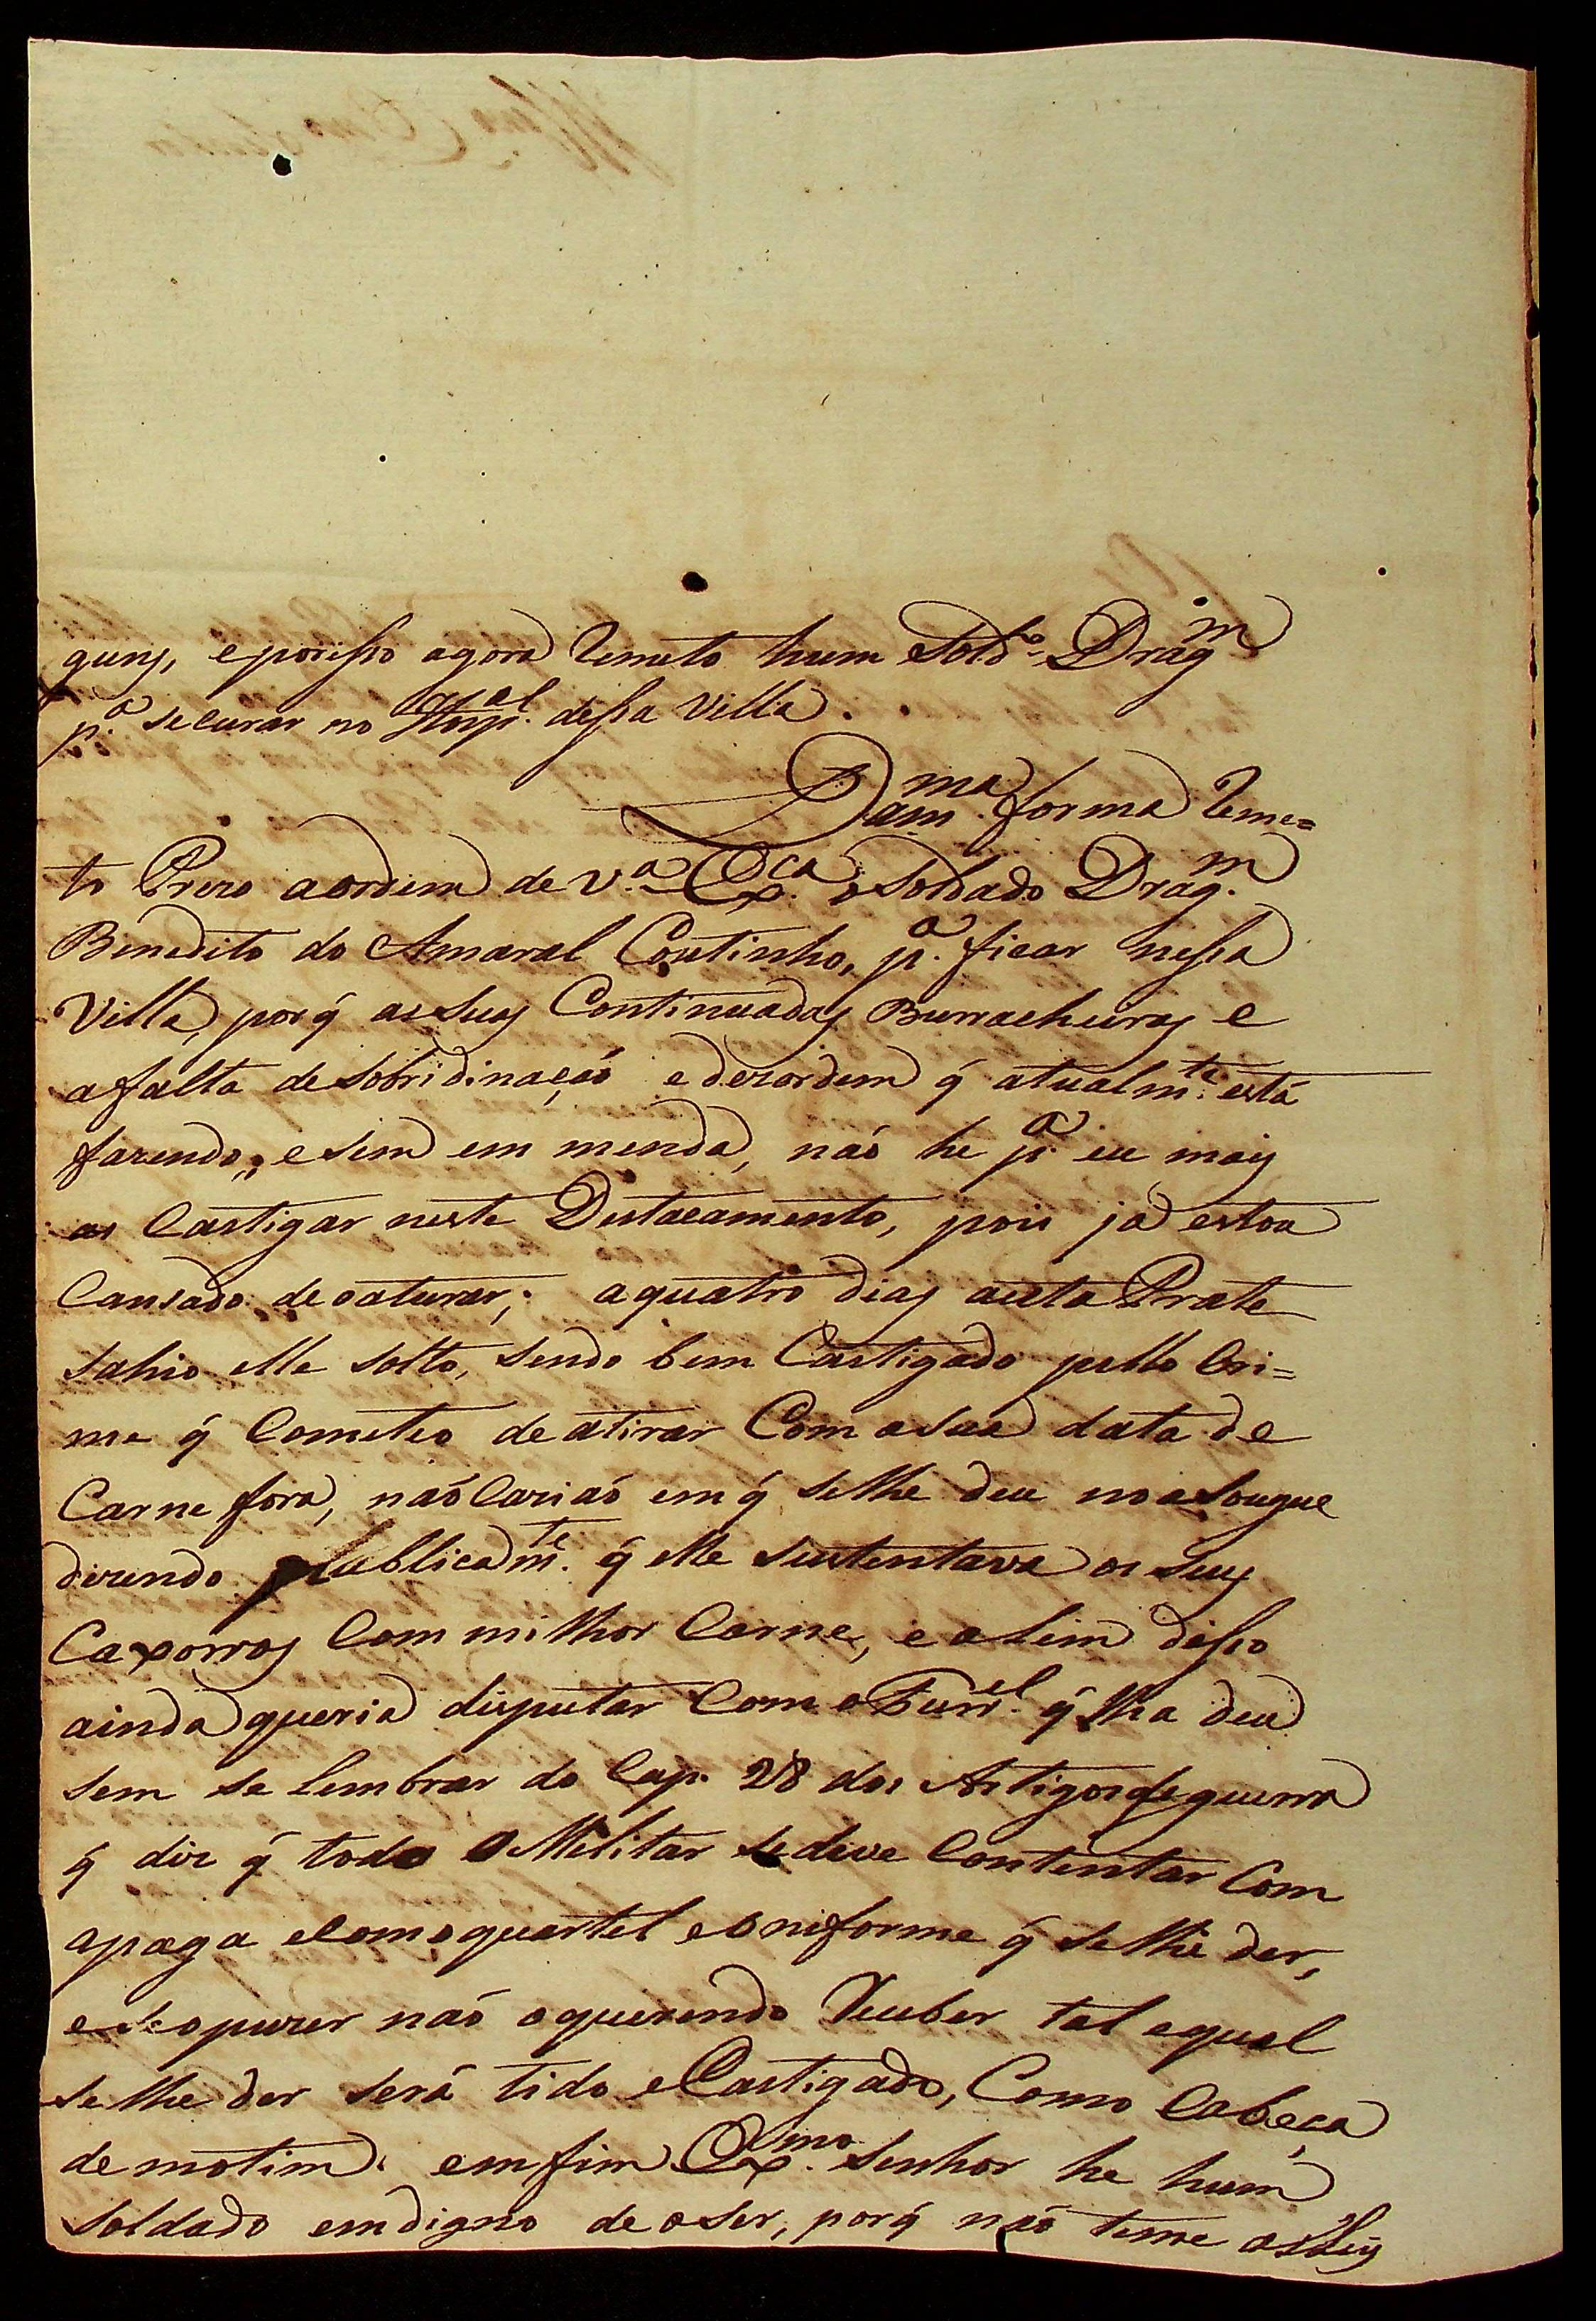 guns, eporisso agora Remeto hum Sold.º Drag.m
p.ª securar no Hosp.al dessa Villa.
Dam.ma forma Reme=
to Prezo aordem de V.ª Ex.ca o Soldado Drag.m
Benedito do Amaral Coutinho, p.ª ficar nessa
Villa, porq̃ assuas Continuadas Burracheiras e
afalta desobridinação edezordem q̃ atualm.te está
fazendo, esem em menda, não he p.ª eu mais
as Castigar neste Destacamento, pois ja estou
Cansado deoaturar; aquatro dias aesta Parte
sahio elle solto, sendo bem Castigado pello Cri=
me q̃ Cometeo deatirar Com asua data de
Carne fora, naóCaziaó emq̃ selhe deu noasougue
dizendo publicadm.te q̃ elle sustentava os seus
Caxorros Com milhor Carne, e alem disso
ainda queria disputar Com oFurr.el q̃ lha deu
sem se lembrar do Cap. 28 dos Artigosdeguerra
q̃ diz q̃ todo oMelitar sedeve Contentar Com
apaga eComoquartel eoniforme q̃ selhe der,
e seopuzer naó oquerendo Receber tal equal
selhe der será tido eCastigado, Como Cabeça
demotim. emfim Ex.mo Senhor he hum
soldado emdigno deoser, porq̃ naó teme asLeis